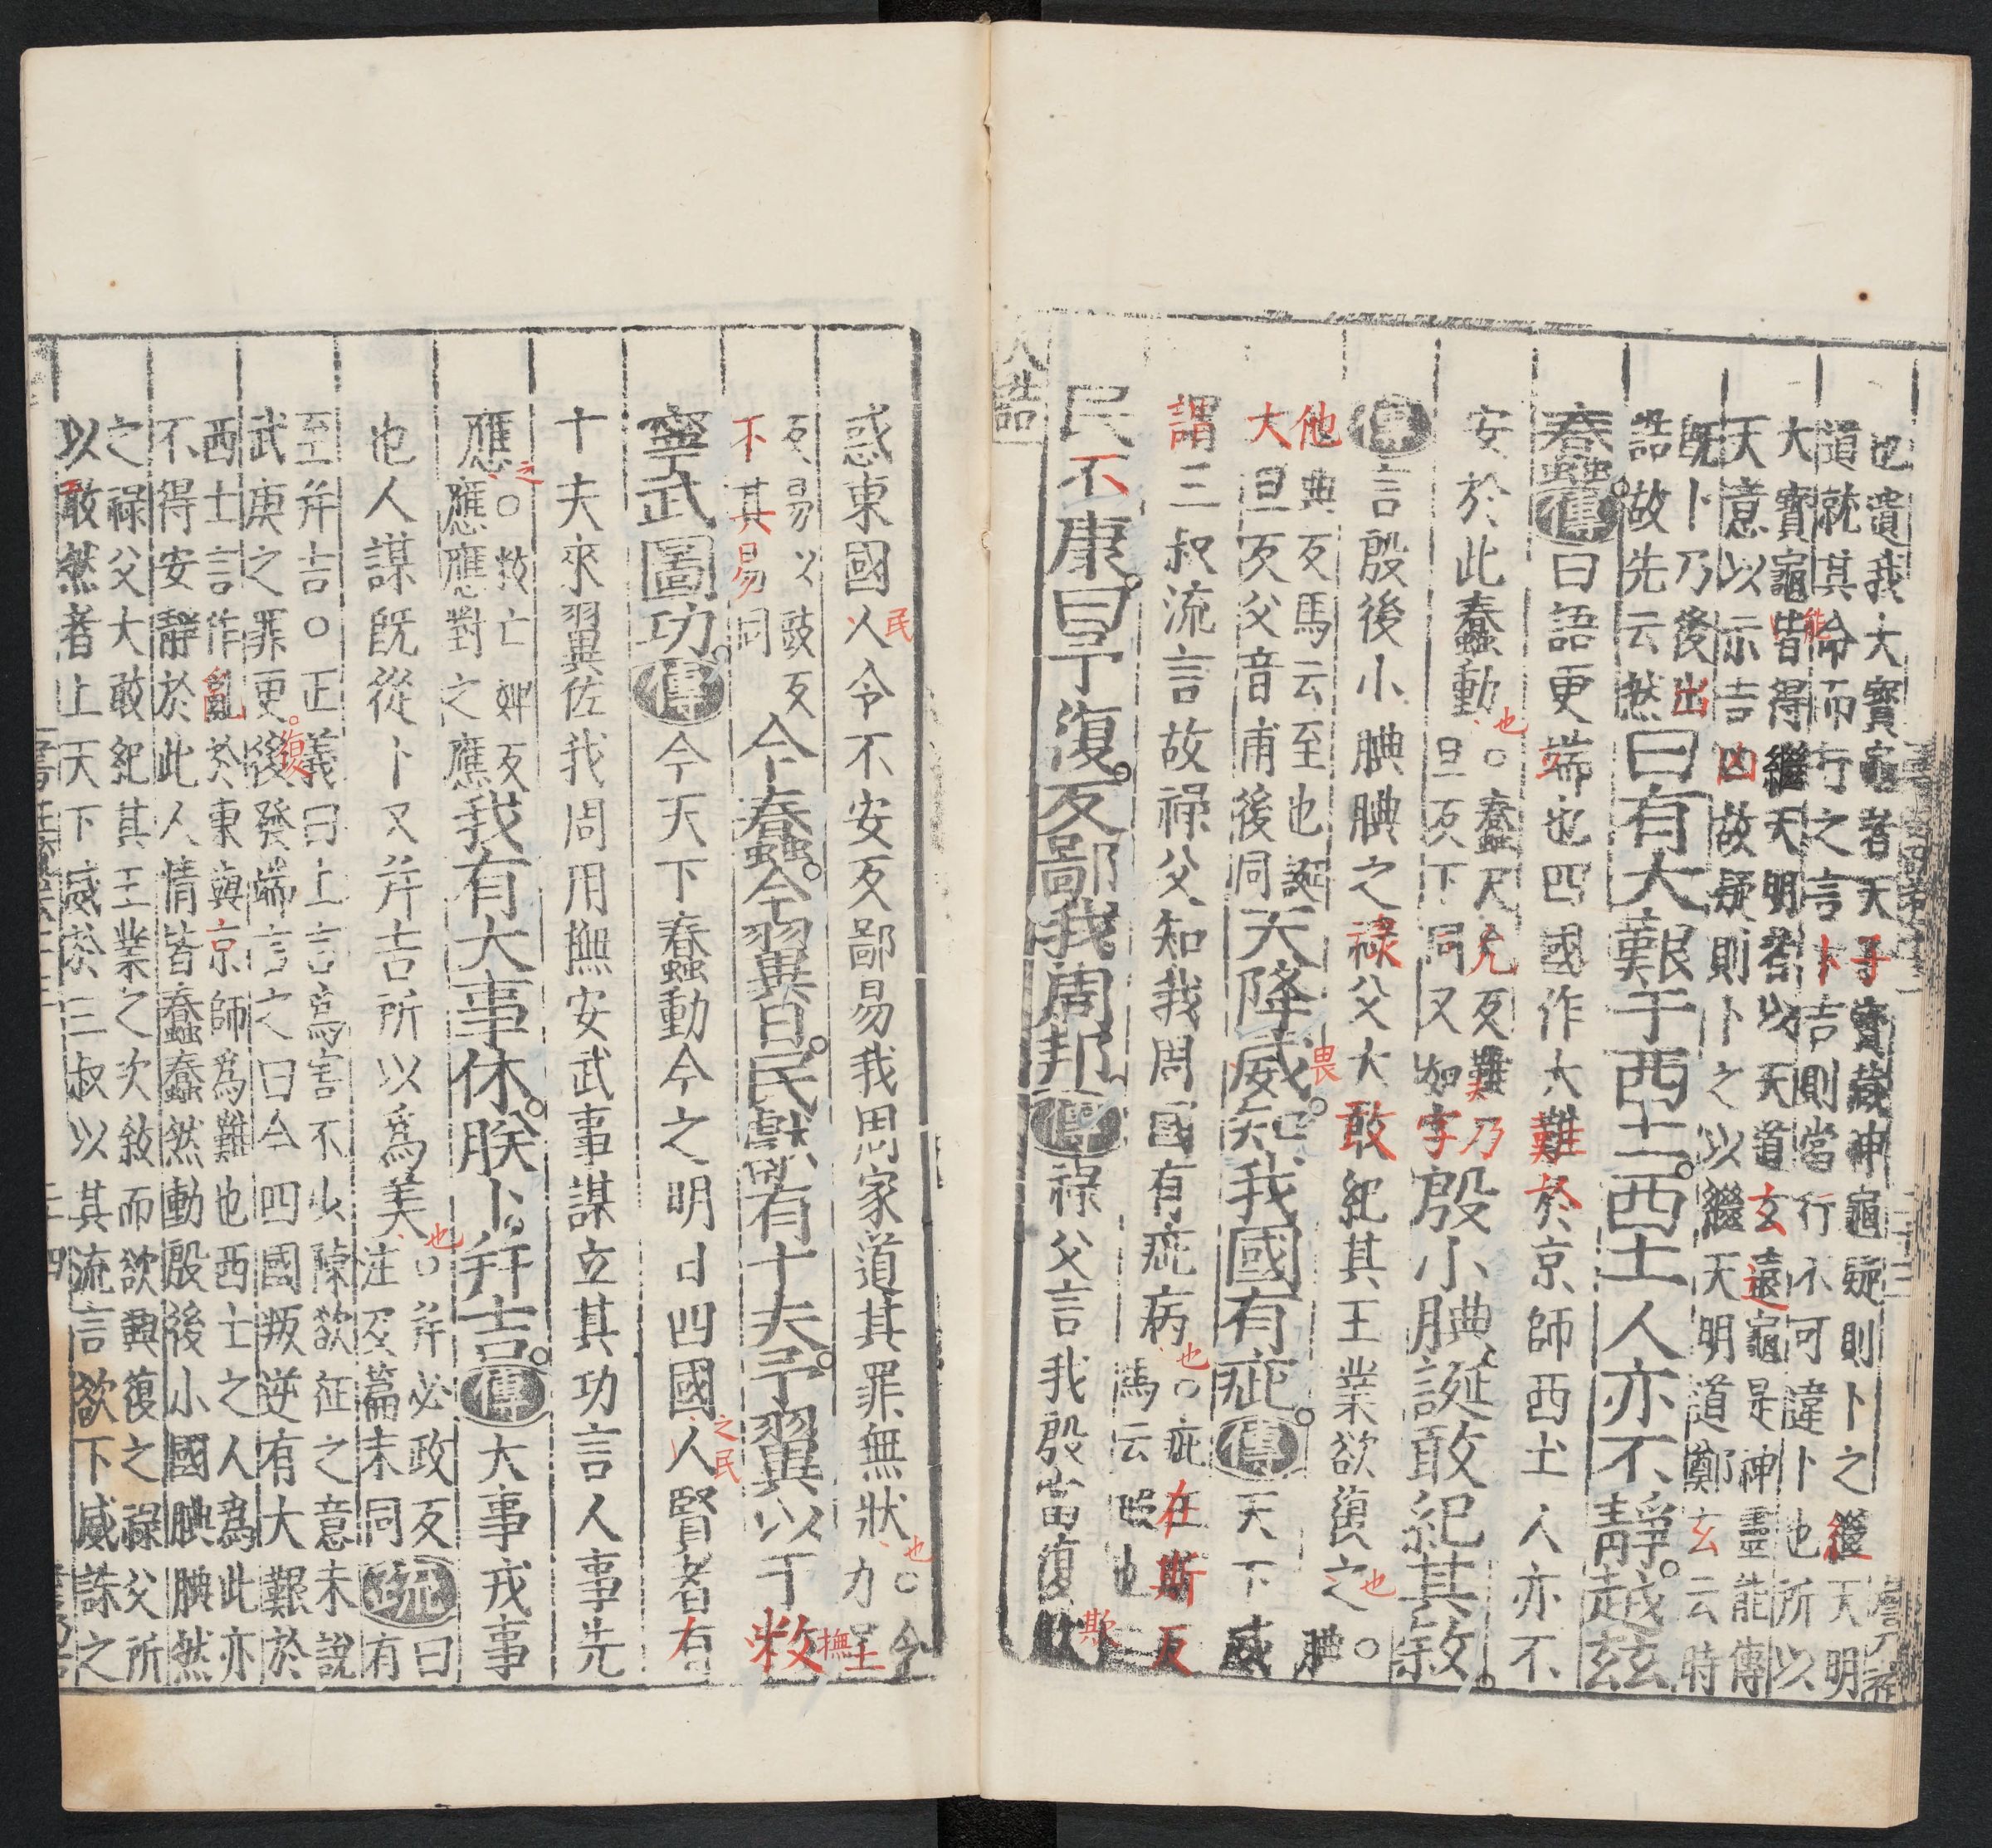 也遺我大寶龜者天子寶藏神龜疑則卜之繼天明
道就其命而行之言卜吉則當行不可違卜也所以
大寶龜皆得繼天明者以天道玄遠龜是神靈能傳
天意以示吉凶故疑則卜之以繼天明道鄭玄云時
既卜乃後出
誥故先云然曰有大艱于西土西土人亦不靜越茲
蠢傳曰語更端也四國作大難於京師西土人亦不
安於此蠢動也○蠢尺允反難乃
旦反下同又如字殷小腆誕敢紀其敘
傳言殷後小腆腆之祿父大敢紀其王業欲復之也○腆
他典反馬云至也誕
大旦反父音甫後同天降威知我國有疵傳天下威
畏
謂三叔流言故祿父知我周國有疵病也○疵在斯反
馬云瑕也
民不康曰予復反鄙我周邦傳祿父言我殷當復欺
大誥
惑東國人民令不安反鄙易我周家道其罪無狀也○令
力呈
反易以豉反
下其易同今蠢今翼日民獻有十夫予翼以于敉
撫
寧武圖功傳今天下蠢動今之明日四國人賢者有
之民
十夫來翼佐我周用撫安武事謀立其功言人事先
應之○敉亡婢反
應應對之應我有大事休朕卜并吉傳大事戎事
也人謀既從卜又并吉所以為美也○并必政反
注及篇末同疏曰有
至并吉○正義曰上言為害不少陳欲征之意未說
武庚之罪更復發端言之曰今四國叛逆有大艱於
西土言作亂於東與京師為難也西土之人為此亦
不得安靜於此人情皆蠢蠢然動殷後小國腆腆然
之祿父大敢紀其王業之次敘而欲興復之祿父所
以敢然者上天下威於三叔以其流言欲下威誅之